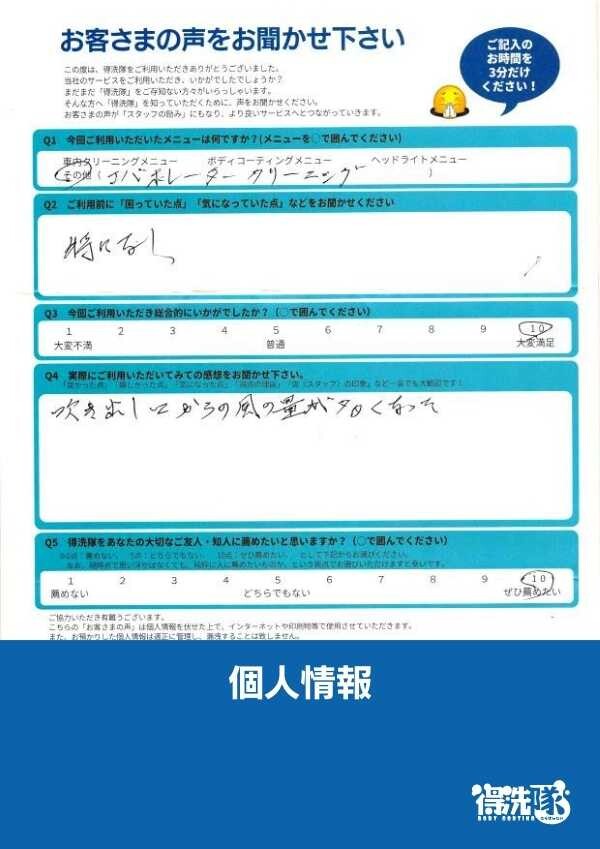 お客さまの声をお聞かせ下さい
ご記入の
お時間を
3分だけ
ください！
この度は、得洗隊をご利用いただきありがとうございました。
当社のサービスをご利用いただき、いかがでしたでしょうか？
まだまだ「得洗隊」をご存知ない方々がいらっしゃいます。
そんな方へ「得洗隊」を知っていただくために、声をお聞かせください。
お客さまの声が「スタッフの励み」にもなり、より良いサービスへとつながっていきます。
Q1 今回ご利用いただいたメニューは何ですか？(メニューを〇で囲んでください)
車内クリーニングメニュー ボディコーティングメニュー ヘッドライトメニュー
その他（ エバポレータークリーニング ）
Q2 ご利用前に「困っていた点」「気になっていた点」などをお聞かせください
特になし
Q3 今回ご利用いただき総合的にいかがでしたか？（〇で囲んでください）
1 2 3 4 5 6 7 8 9 10
大変不満 普通 大変満足
Q4 実際にご利用いただいてみての感想をお聞かせ下さい。
「良かった点」「嬉しかった点」「気になった点」「満点の理由」「店（スタッフ）の印象」など一言でも大歓迎です！
吹き出し口からの風の量が多くなった
Q5 得洗隊をあなたの大切なご友人・知人に薦めたいと思いますか？（〇で囲んでください）
1 2 3 4 5 6 7 8 9 10
薦めない どちらでもない ぜひ薦めたい
ご協力いただき有難うございます。
こちらの「お客さまの声」は個人情報を伏せた上で、インターネットや印刷物等で使用させていただきます。
また、お預かりした個人情報は適正に管理し、漏洩することは致しません。
個人情報
得洗隊